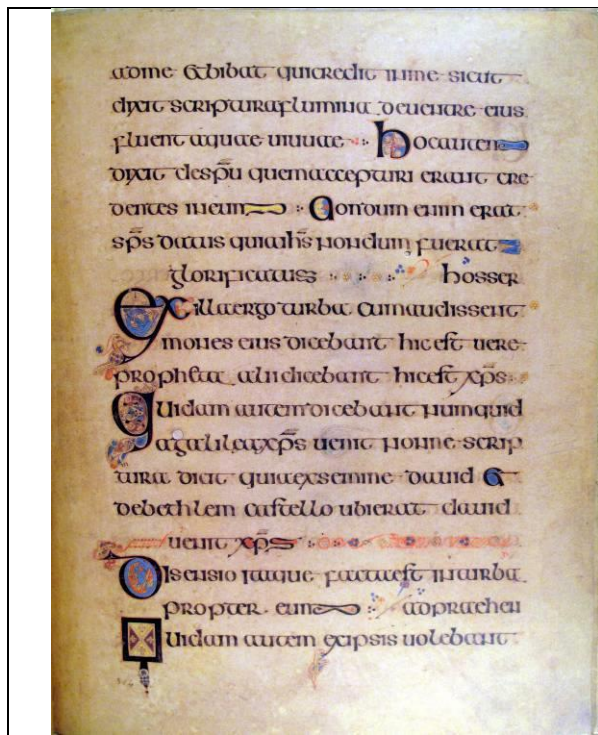 adme & bibat qui credit inme sicut
dixit scriptura flumina deuentre eius
fluent aquae uiuae hoc autem
dixit de sp̄u quem accepturi erant cre
dentes ineum Nondum enim erat
sp̄s datus quia ih̄s nondum fuerat
glorificatus hosser
Ex illa ergo turba cum audissent
mones eius dicebant hic est uere
propheta alii dicebant hic est xp̄s
Quidam autem dicebant numquid
a galilea xp̄s uenit nonne scrip
tura dicit quia ex semine dauid &
debethlem castello ubi erat dauid
uenit xp̄s
Disensio itaque facta est inturba
propter eum adpraehen
Quidam autem ex ipsis uolebant